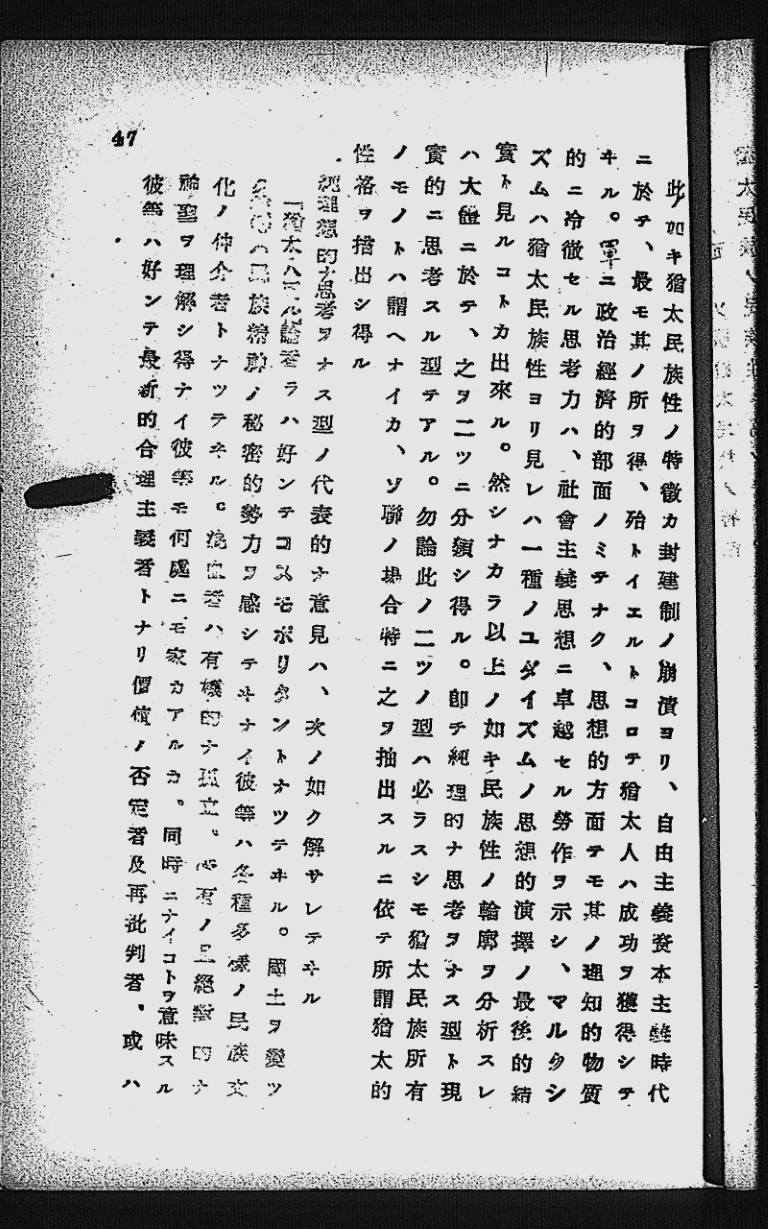 此ノ如キ猶太民族性ノ特徴カ封建制ノ崩潰ヨリ、自由主義資本主義時代
ニ於テ、最モ其ノ所ヲ得、殆トイエルトコロテ猶太人ハ成功ヲ獲得シテ
キル。單ニ政治經濟的部面ノミテナク、思想的方面テモ其ノ理知的物質
的ニ冷徹セル思考力ハ、社會主義思想ニ卓越セル勞作ヲ示シ、マルクシ
ズムハ猶太民族性ヨリ見レハ一種ノユダイズムノ思想的演擇ノ最後的結
實ト見ルコトカ出來ル。然シナカラ以上ノ如キ民族性ノ輪廓ヲ分析スレ
ハ大體ニ於テ、之ヲ二ツニ分類シ得ル。卽チ純理的ナ思考ヲナス型ト現
實的ニ思考スル型テアル。勿論此ノ二ツノ型ハ必ラスシモ猶太民族所有
ノモノトハ謂ヘナイカ、ソ聯ノ場合特ニ之ヲ抽出スルニ依テ所謂猶太的
性格ヲ摘出シ得ル
純理想的ナ思考ヲナス型ノ代表的ナ意見ハ、次ノ如ク解サレテキル
「猶太人 論者ラハ好ンテコスモポリタントナツテキル。國土ヲ愛ツ
ハ民族精神ノ秘密的勢力ヲ感シテキナイ彼等ハ各種多樣ノ民族文
化ノ仲介者トナツテキル。混血者ハ有機的ナ孤立。 有ノ 絕對的ナ
神聖ヲ理解シ得ナイ彼等モ何處ニモ家カアルカ。同時ニナイコトヲ意味スル
彼等ハ好ンテ最新的合理主義者トナリ價値ノ否定者及再批判者、或ハ
47